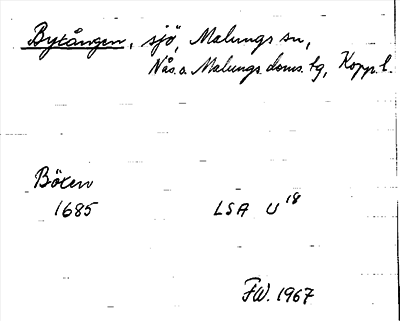 Bytången, sjö, Malungs sn,
Nås o. Malungs doms. tg, Kopp. l.
Böten
1685 LSA U 18
FW. 1967